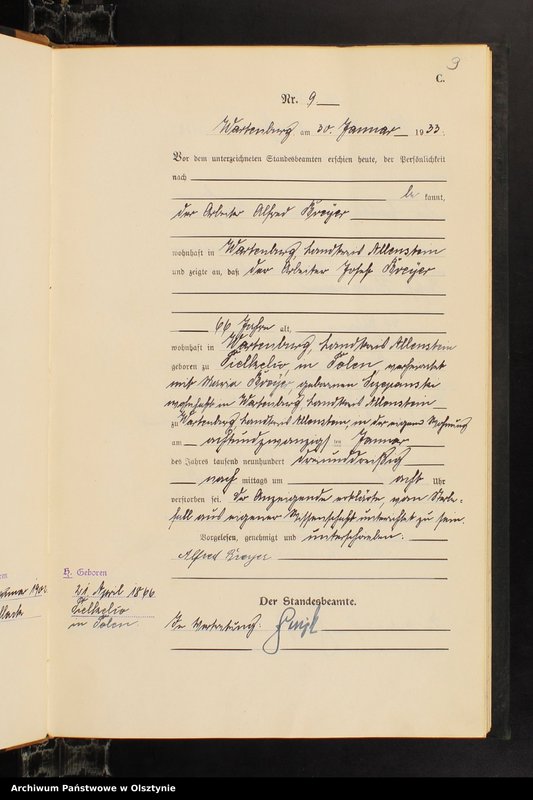 9
C.
Nr. 9
Wartenburg am 30. Januar 1933.
Vor dem unterzeichneten Standesbeamten erschien heute, der Persönlichkeit
nach
be kannt,
der Arbeiter Alfred Kroyer
wohnhaft in Wartenburg, Landkreis Allenstein
und zeigte an, daß der Arbeiter Josef Kroyer
66 Jahre alt,
wohnhaft in Wartenburg, Landkreis Allenstein
geboren zu in Polen, verheiratet
mit Maria Kroyer geborenen
wohnhaft in Wartenburg, Landkreis Allenstein
zu Wartenburg Landkreis Allenstein, in der eigenen Wohnung
am achtundzwanzigsten Januar
des Jahres tausend neunhundert dreiunddreißig
nach mittags um acht Uhr
verstorben sei. Der Anzeigende erklärte, vom Sterbe-
fall aus eigener Wissenschaft unterrichtet zu sein.
Vorgelesen, genehmigt und unterschrieben.
Alfred Kroyer
H. Geboren
21. April 1866
in Polen
Der Standesbeamte.
In Vertretung:
Archiwum Państwowe w Olsztynie